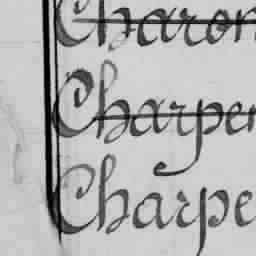 Charon
Charpen
Charpe